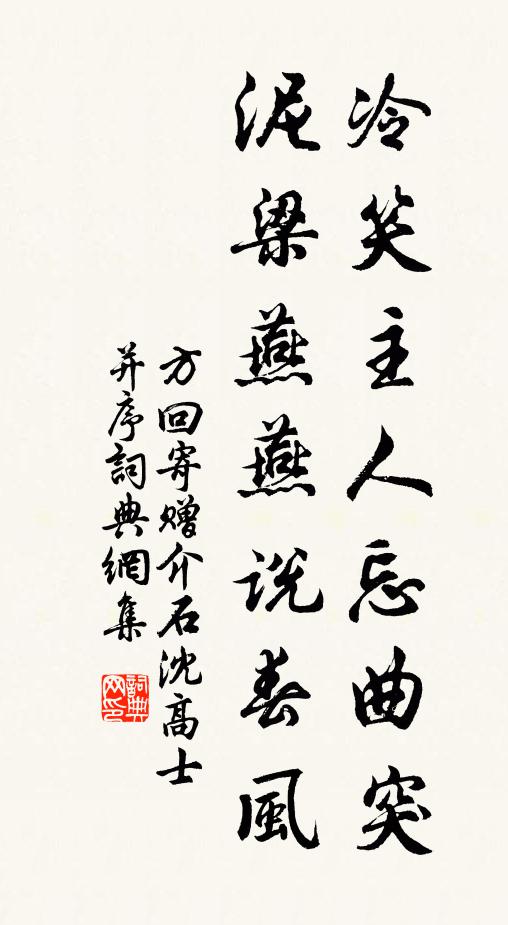 冷笑主人忘曲突
泥梁燕燕说春風
方回寄贈介石沈高士
并序詞典網集
詞典网印